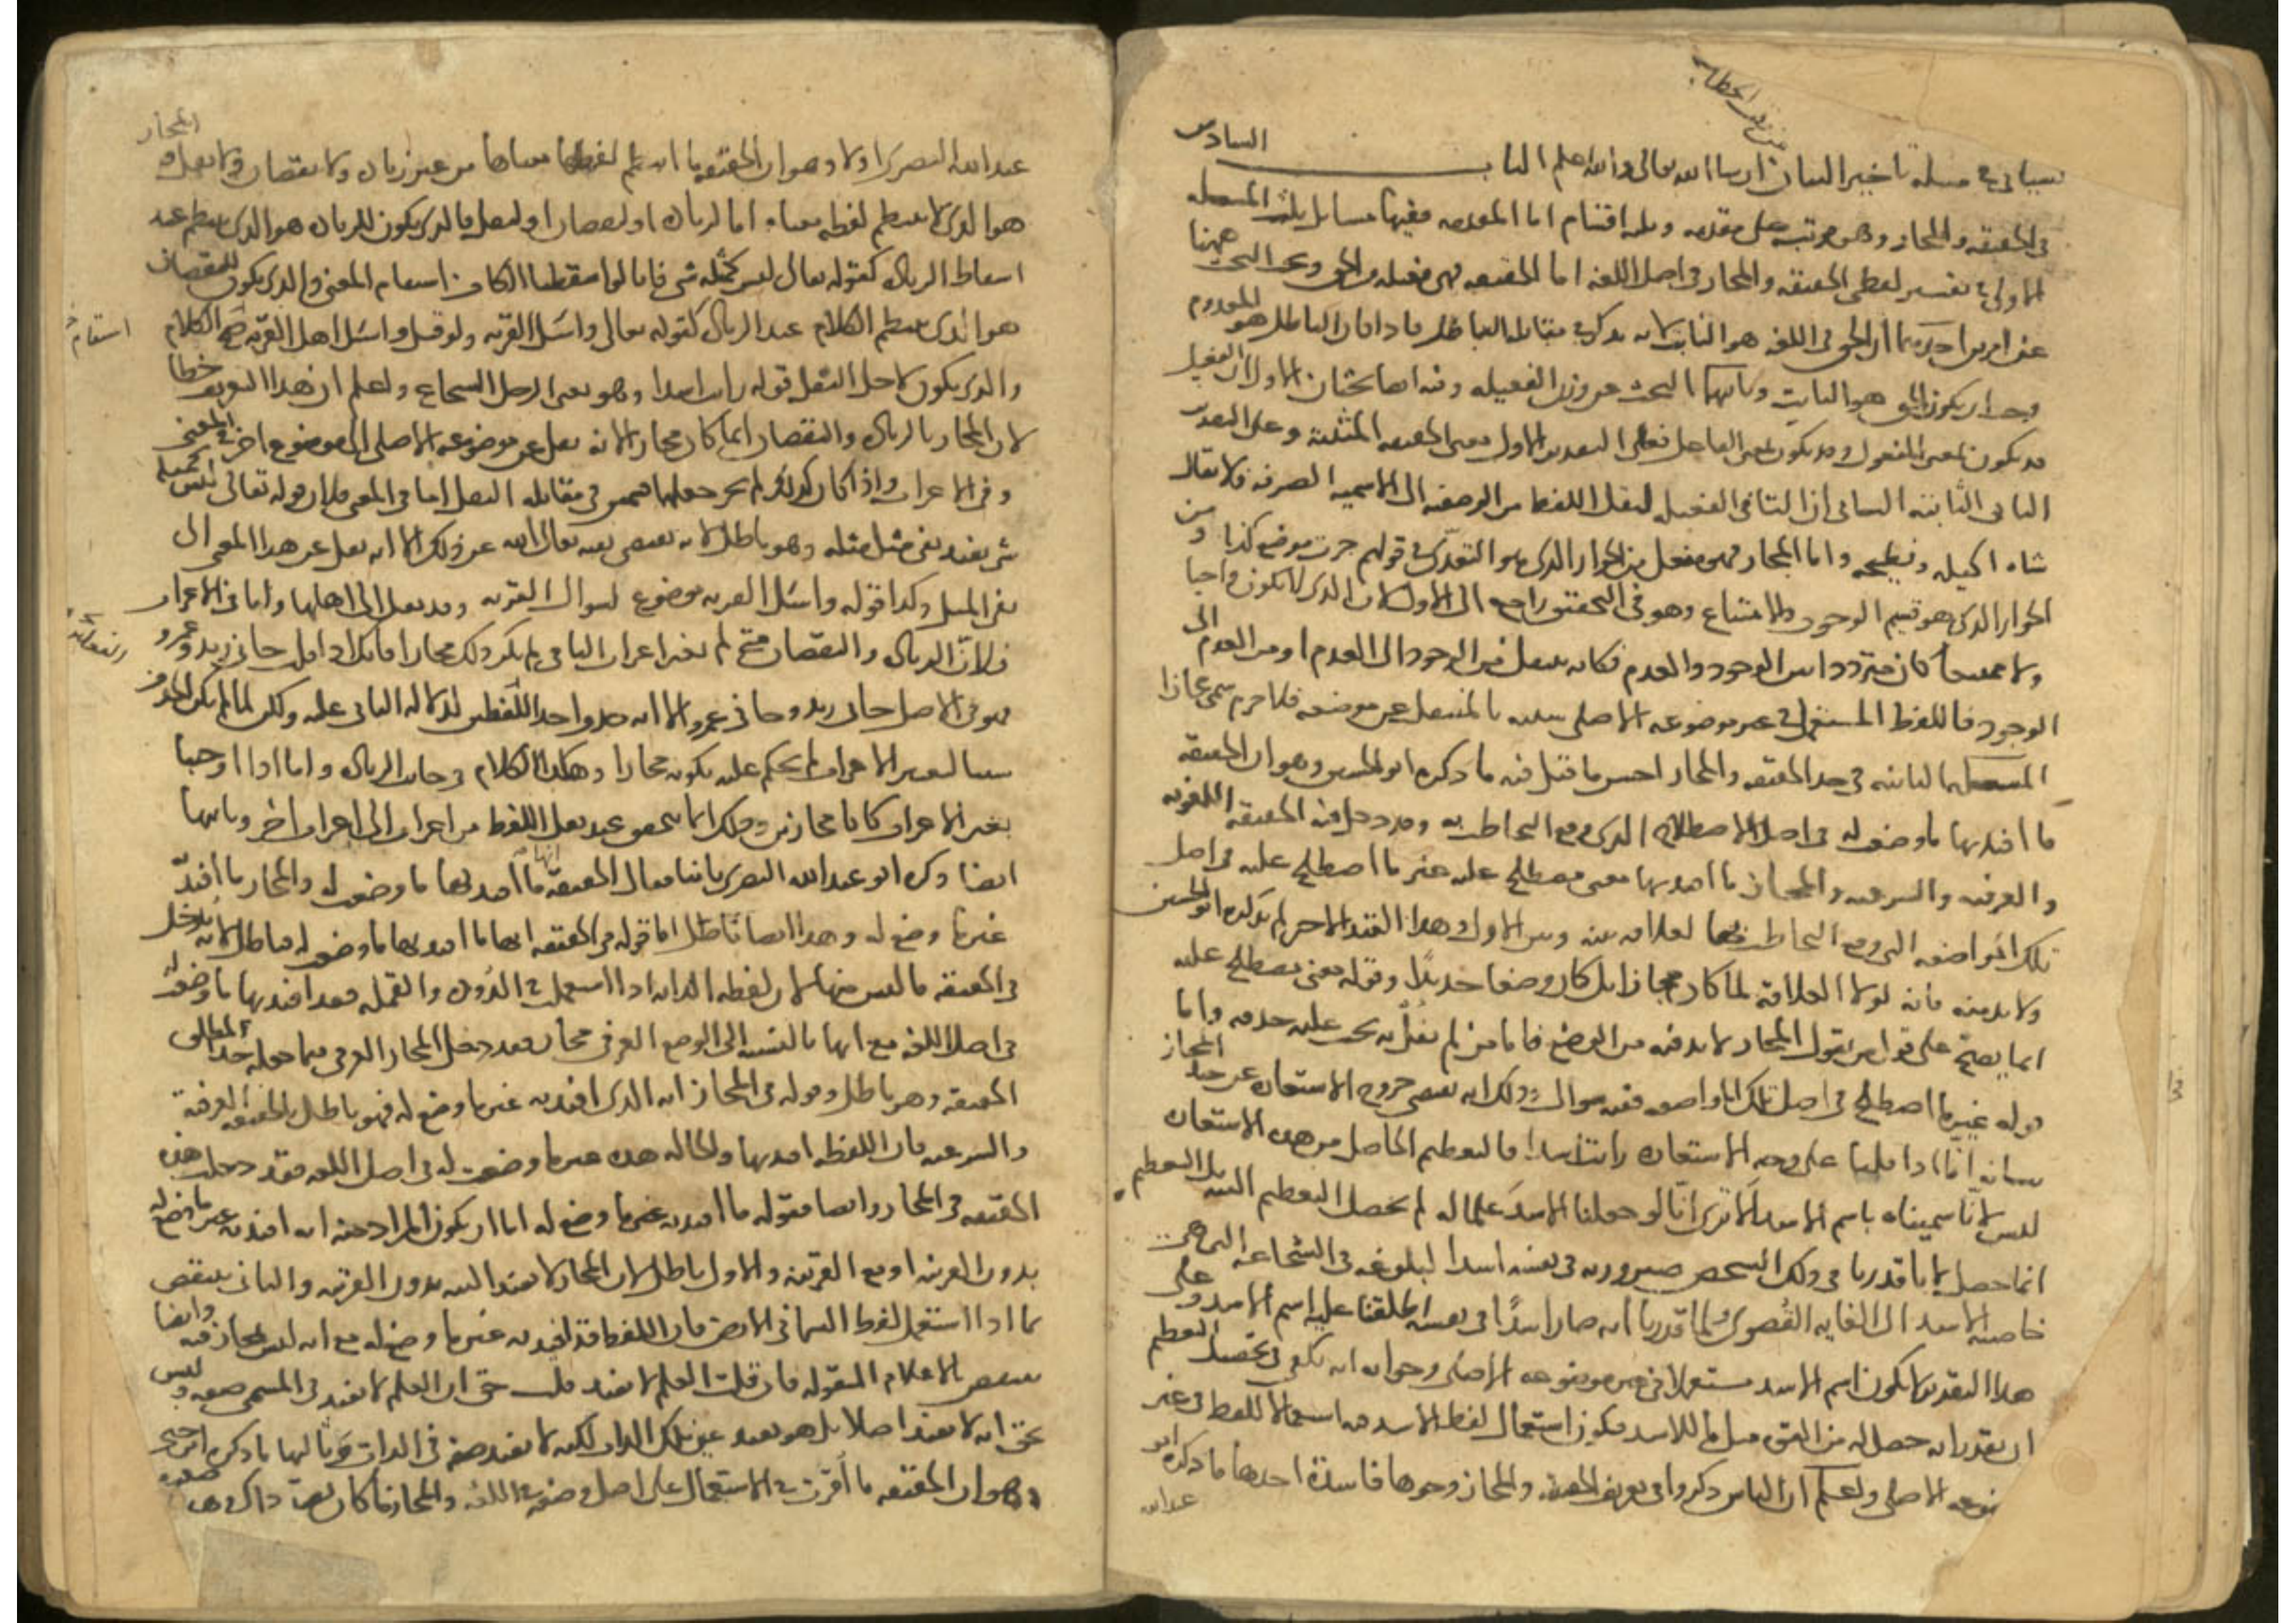 سيأتي في مسئلة تأخير البيان ان شا الله تعالى والله اعلم الباب السادس
في الحقيقة والمجاز وهو مرتب على مقدمه وثلثه اقسام اما المقدمه ففيها مسايل ثلث المسئله
الاولى في تفسير لفظي الحقيقة والمجاز في اصل اللغه اما الحقيقه فهي فعيله من الحق وحد البحث ههنا
عن امرين احدهما ان الحق في اللغه هو الثابت لانه يذكر في مقابله الباطل فاذا كان الباطل هو المعدوم
وجب ان يكون الحق هو الثابت وثانيهما البحث عن وزن الفعيله وفيه ايضا بحثان الاول ان الفعيل
قد يكون بمعنى المفعول وقد يكون بمعنى الفاعل فعلى التقدير الاول معنى الحقيقه المثبتة وعلى التقدير
الثاني الثابتة الثاني ان التا في الفعيل لنقل اللفظ من الوصفيه الى الاسميه الصرفه فلا يقال
شاه اكيله ونطيحه واما المجاز فهو مفعل من الجواز الذي هو التعدي في قولهم جزت موضع كذا و من
الجواز الذي هو قسيم الوجوب والامتناع وهو في التحقيق راجع الى الاول لان الذي لا يكون واجبا
ولا ممتنعا كان مترددا بين الوجود والعدم فكانه ينتقل من الوجود الى العدم او من العدم الى
الوجود فاللفظ المستعمل في غير موضوعه الاصلي شبيه بالمنتقل عن موضعه فلا جرم سمي مجازا
المسئله الثانيه في حد الحقيقه والمجاز احسن ما قيل فيه ما ذكره ابو الحسين وهو ان الحقيقه
ما افيد بها ما وضعت له في اصل الاصطلاح الذي وقع التخاطب به وقد دخل فيه الحقيقه اللغويه
والعرفيه والشرعيه والمجاز ما افيد بها معنى مصطلح عليه غير ما اصطلح عليه في اصل
تلك المواضعه التي وقع التخاطب بها لعلاقه بينه وبين الاول وهذا القيد الاخير لم يذكره ابو الحسين
ولا بد منه فانه لولا العلاقة لما كان مجازا بل كان وضعا جديدا وقوله معنى مصطلح عليه
انما يصح على قول من يقول المجاز لا بد فيه من الوضع فاما من لم يقل به يجب عليه حذفه واما
قوله غير ما اصطلح في اصل تلك المواضعه ففيه سوال وذلك انه يقتضي خروج الاستعاره عن حد المجاز
بيانه انا اذا قلنا على وجه الاستعاره رايت اسدا فالتعظيم الحاصل من هذه الاستعاره
ليس لانا سميناه باسم الاسد الا ترى انا لو جعلنا الاسد علما له لم يحصل التعظيم البته بل التعظيم
انما حصل لانا قدرنا في ذلك الشخص صيرورته في نفسه اسدا لبلوغه في الشجاعه التي هي
خاصيه الاسد الى الغايه القصوى فلما قدرنا انه صار اسدا في نفسه اطلقنا عليه اسم الاسد وعلى
هذا التقدير لا يكون اسم الاسد مستعملا في غير موضوعه الاصلي وجوابه انه يكفي في تحصيل التعظيم
ان يقدر انه حصل له من القوه مثل ما للاسد فيكون استعمال لفظ الاسد فيه استعمالا للفظ في غير
موضوعه الاصلي واعلم ان الناس ذكروا في تعريف الحقيقه والمجاز وجوها فاسدة احدها ما ذكره ابو
عبدالله
عبد الله البصري اولا وهو ان الحقيقه ما انتظم لفظها معناها من غير زياده ولا نقصان ولا نقل والمجاز
هو الذي لا ينتظم لفظه معناه اما لزياده او لنقصان او لنقل فالذي يكون للزياده هو الذي ينتظم عند
اسقاط الزياده كقوله تعالى ليس كمثله شي فانا لو اسقطنا الكاف استقام المعنى والذي يكون للنقصان
هو الذي ينتظم الكلام عند الزياده كقوله تعالى واسئل القريه ولو قيل واسئل اهل القريه صح الكلام
استقام
والذي يكون لاجل النقل قوله رايت اسدا وهو يعني الرجل الشجاع واعلم ان هذا التعريف خطا
لان المجاز بالزياده والنقصان انما كان مجازا لانه نقل عن موضوعه الاصلي الى موضوع اخر في المعنى
وفي الاعراب واذا كان كذلك لم يجز جعلهما قسمين في مقابله النقل اما في المعنى فلان قوله تعالى ليس كمثله
شي يفيد نفي مثل مثله وهو باطل لانه يقتضي نفيه تعالى الله عن ذلك الا انه نقل عن هذا المعنى الى
نفي المثل وكذا قوله واسئل القريه موضوع لسوال القريه وقد نقل الى اهلها واما في الاعراب
فلان الزياده والنقصان متى لم يغيرا اعراب الباقي لم يكن ذلك مجازا فانك اذا قلت جاني زيد وعمرو
فهو في الاصل جاني زيد وجاني عمرو الا انه حذف احد اللفظين لدلاله الثاني عليه ولكن لما لم يكن الحذف
سببا لتغيير الاعراب لم يحكم عليه بكونه مجازا وهكذا الكلام في جانب الزياده واما اذا اوجبا
تغير الاعراب كانا مجازين وذلك انما يتحقق عند نقل اللفظ من اعراب الى اعراب اخر وثانيها
ايضا ذكره ابو عبد الله البصري ثانيا فقال الحقيقه ما افيد بها ما وضعت له والمجاز ما افيد به
غير ما وضع له وهذا ايضا باطل اما قوله في الحقيقه انها ما افيد بها ما وضعت له فباطل لانه يدخل
في الحقيقه ما ليس منها لان لفظه الدابه اذا استعملت في الدوده والقمله فقد افيد بها ما وضعت له
في اصل اللغه مع انها بالنسبه الى الوضع العرفي مجاز فقد دخل المجاز العرفي فيما جعله حدا لمطلق
الحقيقه وهو باطل وقوله في المجاز انه الذي افيد به غير ما وضع له فهو باطل بالحقيقه العرفية
والشرعيه فان اللفظه افيد بها والحاله هذه غير ما وضعت له في اصل اللغه فقد دخلت هذه
الحقيقه في المجاز وايضا فقوله ما افيد به غير ما وضع له اما ان يكون المراد منه انه افيد به غير ما وضع له
بدون القرينه او مع القرينه والاول باطل لان المجاز لا يفيد البته بدون القرينه والثاني ينتقض
بما اذا استعمل لفظ السما في الارض فان اللفظ قد افيد به غير ما وضع له مع انه ليس بمجاز فيه وايضا
ينتقض بالاعلام المنقوله فان قلت العلم لا يفيد قلت حق ان العلم لا يفيد في المسمى صفه وليس
بحق انه لا يفيد اصلا بل هو يفيد عين تلك الذات لكنه لا يفيد صفه في الذات وثالثها ما ذكره ابن جني
وهو ان الحقيقه ما اقرت في الاستعمال على اصل وضعه في اللغه والمجاز ما كان بضد ذلك